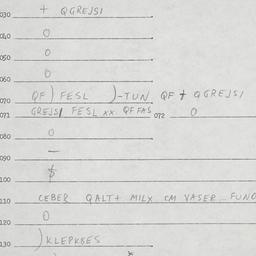 030 + QGREJSI
040 0
050 0
060 0
070 QF) FESL )-TUN QF + QGREJSI
071 GREJSI FESL XX QF FAS 072 0
080 0
090 —
100 $
110 CEBER QALT+ MILX CM VASER FUNO
120 0
130 )KLEPKBES